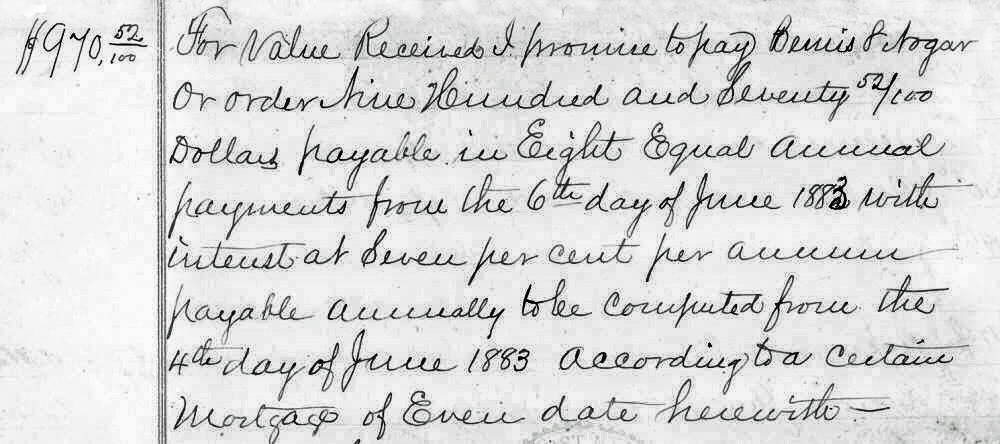 $970.52/100
For Value Received I promise to pay Bemis & Nogar
Or order Nine Hundred and Seventy 52/100
Dollars payable in Eight Equal annual
payments from the 6th day of June 1883 with
interest at Seven per cent per annum
payable annually to be computed from the
4th day of June 1883 according to a certain
Mortgage of Even date herewith —